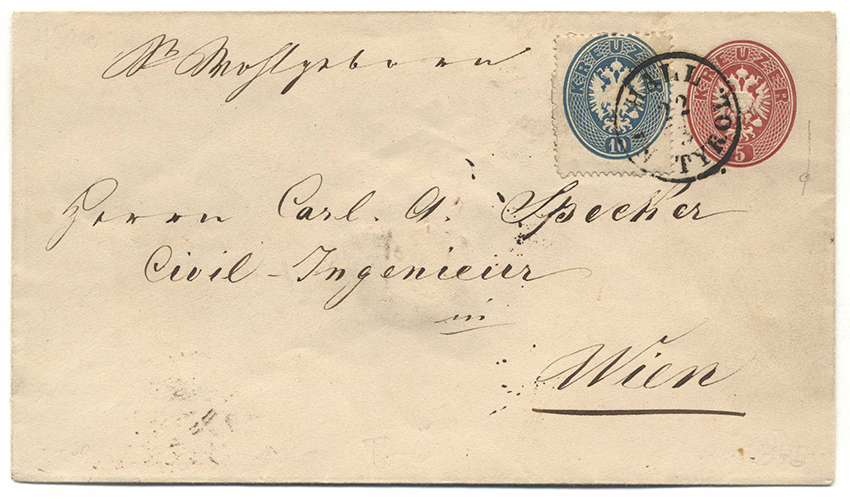 Sr Wohlgeborn
KREUZER
10
KREUZER
5
HALL
22
TYROL
Herrn Carl. A. Specker
Civil-Ingenieur
in
Wien